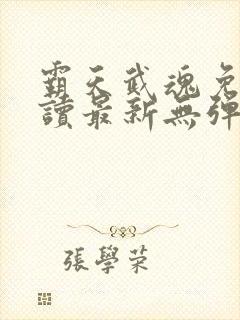 霸天武魂免
讀最新無彈
張學荣